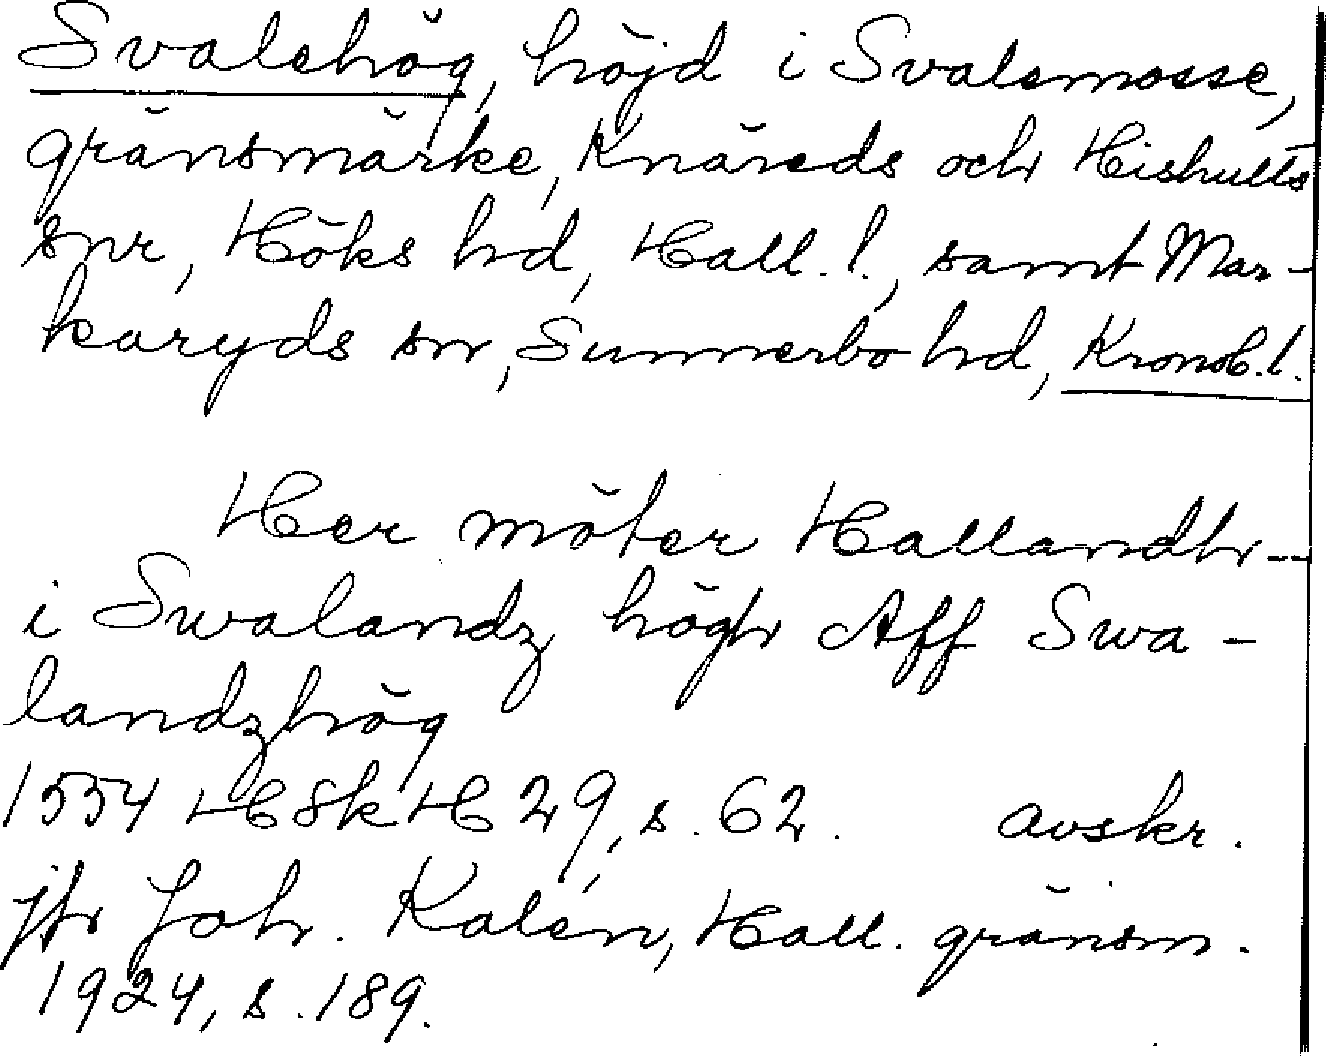 Svalehög, höjd i Svalemosse,
gränsmärke, Knäreds och Hishults
snr, Höks hd, Hall. l., samt Mar-
karyds sn, Sunnerbo hd, Kronob. l.
Her möter Hallandh--
i Swalandz högh Aff Swa-
landzhög
1554 HSkH 29, s. 62. avskr.
jfr Joh. Kalén, Hall. gränsm.
1924, s. 189.